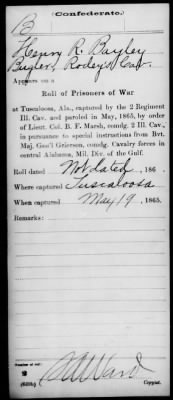 (Confederate.)
B
Henry R. Bayley
Bugler, Rodey's Cav.
Appears on a
Roll of Prisoners of War
at Tuscaloosa, Ala., captured by the 2 Regiment
Ill. Cav. and paroled in May, 1865, by order
of Lieut. Col. B. F. Marsh, comdg. 2 Ill. Cav.,
in pursuance to special instructions from Bvt.
Maj. Gen'l Grierson, comdg. Cavalry forces in
central Alabama, Mil. Div. of the Gulf.
Roll dated Not dated, 186 .
Where captured Tuscaloosa
When captured May 19, 1865.
Remarks:
Number of roll:
2
Copyist.